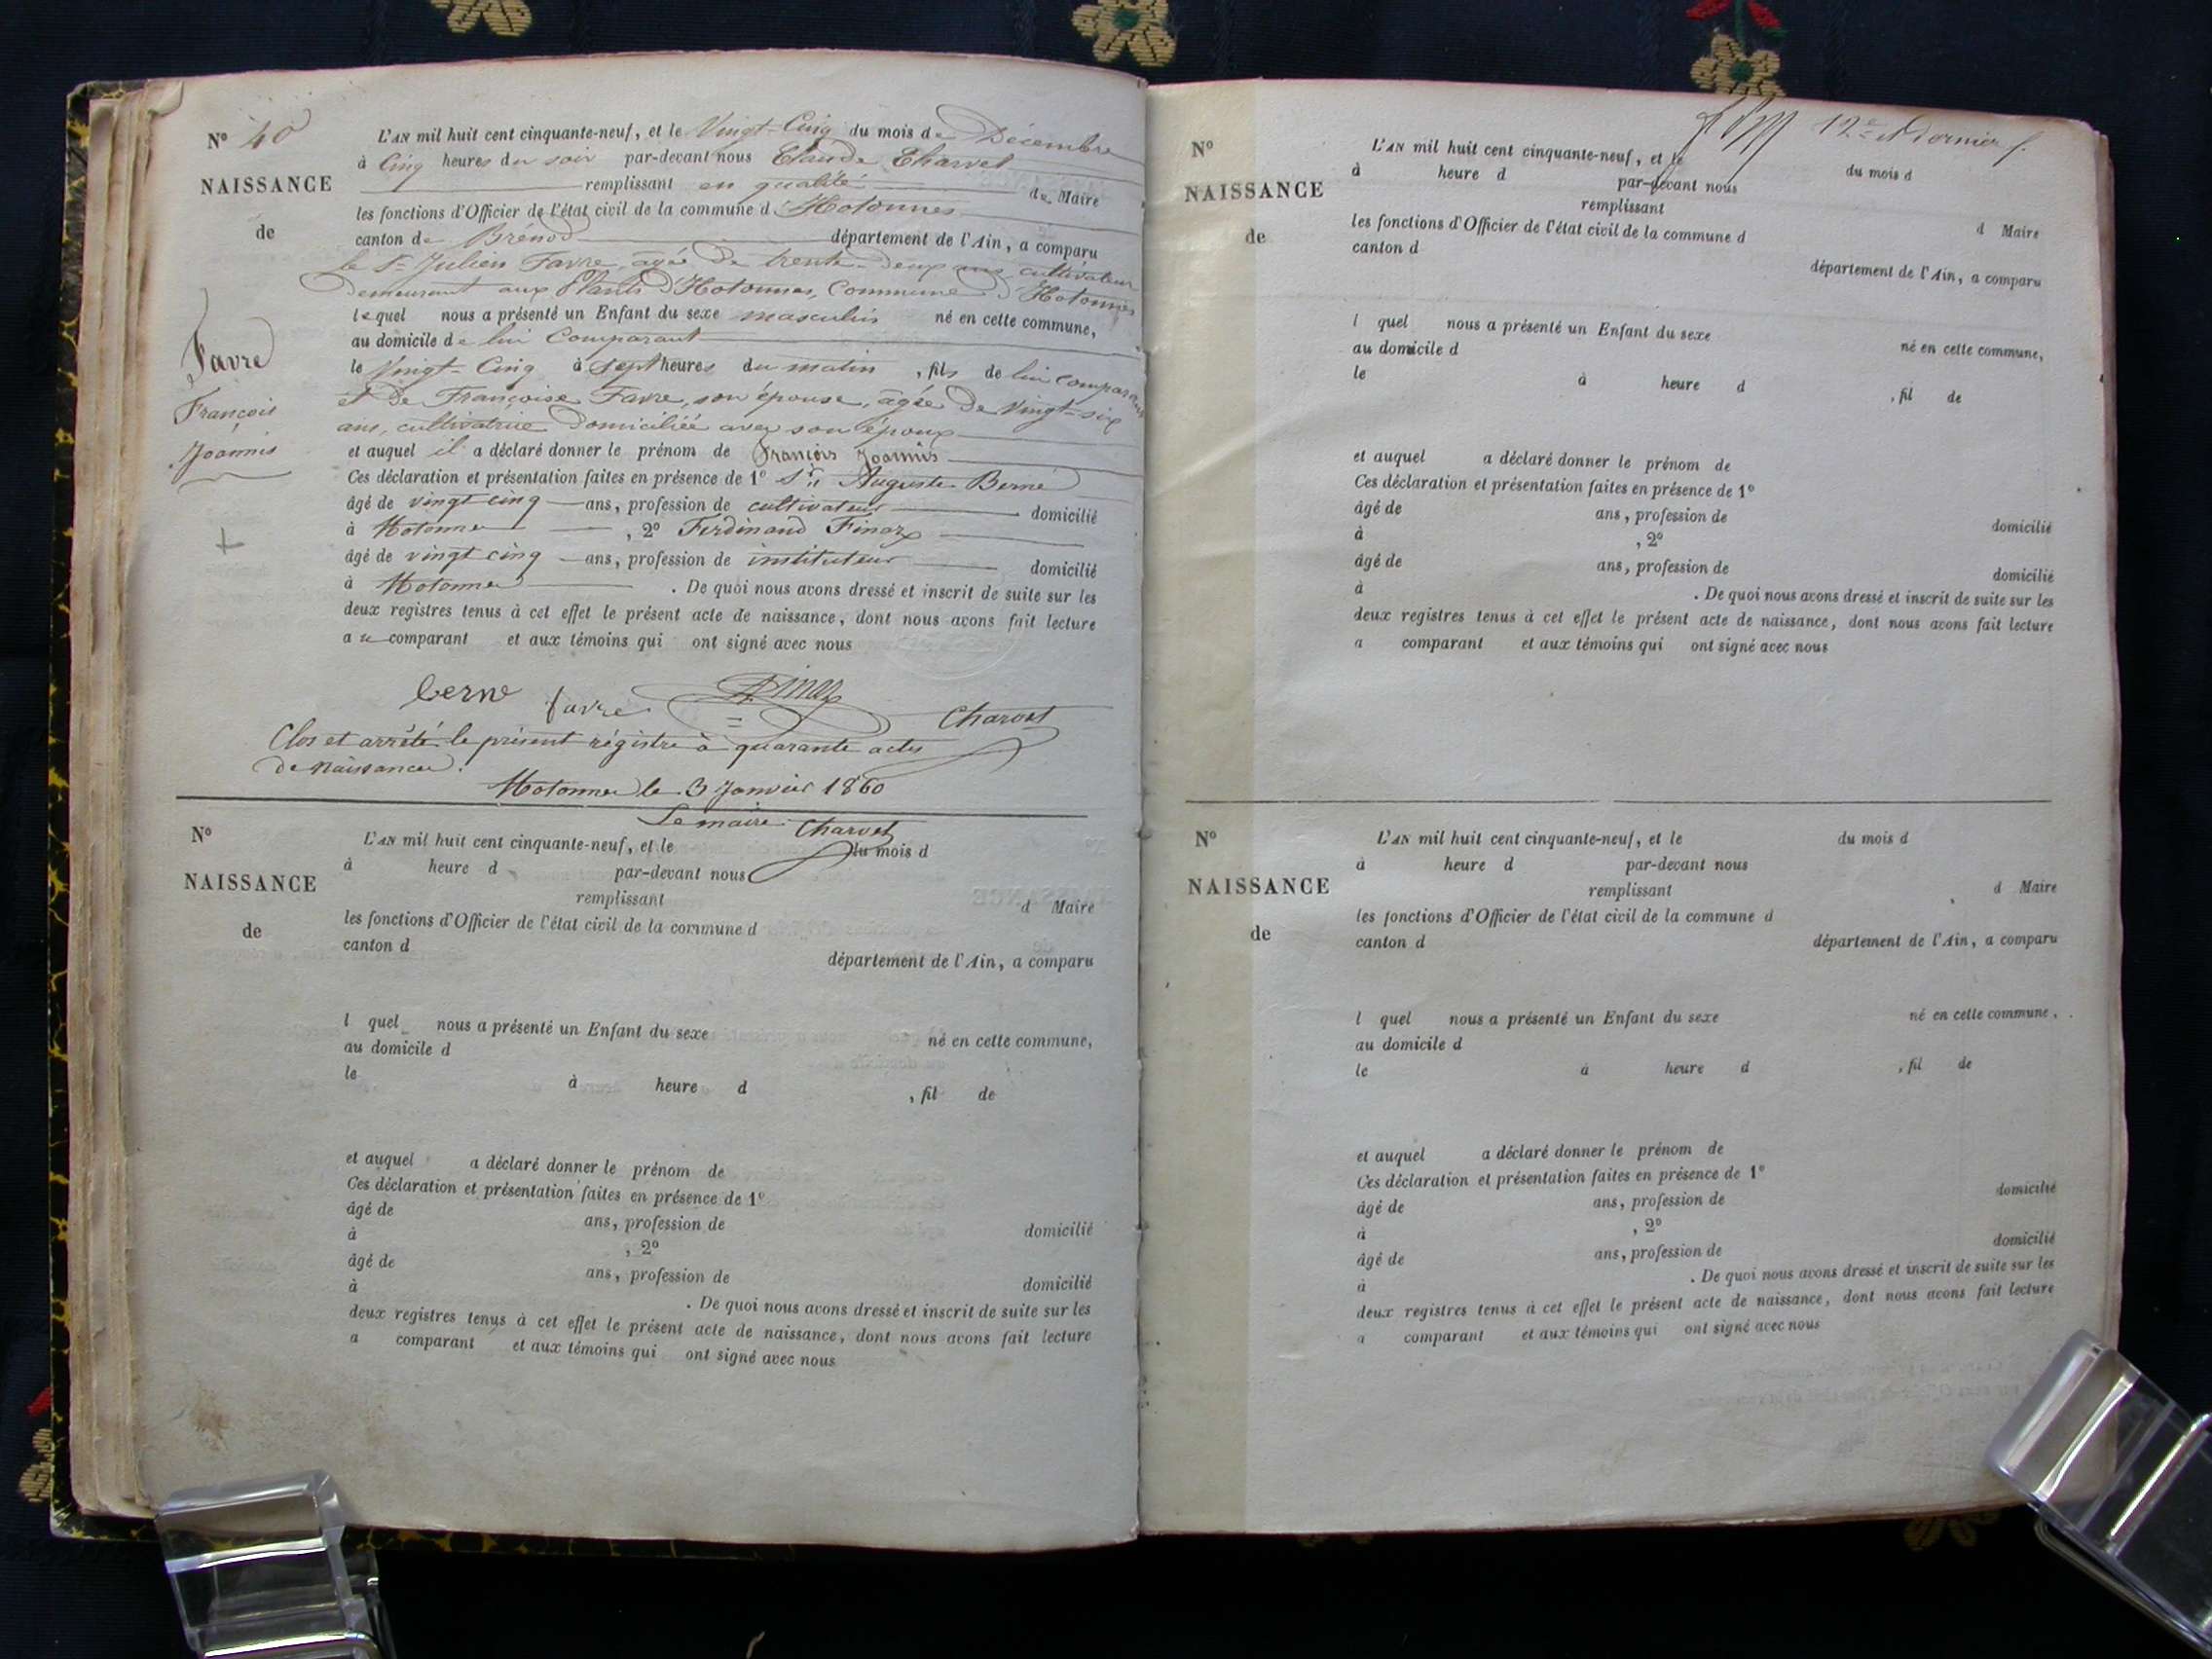 N° 40
NAISSANCE
de
Favre
François
Joannis
L'AN mil huit cent cinquante-neuf, et le Vingt-Cinq du mois de Décembre
à Cinq heures du soir par-devant nous Claude Charvet
remplissant en qualité de Maire
les fonctions d'Officier de l'état civil de la commune d'Hotonnes
canton de Brénod département de l'Ain, a comparu
le Sr Julien Favre, âgé de trente-deux ans, cultivateur
demeurant aux Plants d'Hotonnes, Commune d'Hotonnes
lequel nous a présenté un Enfant du sexe masculin né en cette commune,
au domicile de lui Comparant
le Vingt-Cinq à sept heures du matin, fils de lui comparant
et de Françoise Favre, son épouse, âgée de Vingt-six
ans, cultivatrice domiciliée avec son époux
et auquel il a déclaré donner le prénom de François Joannis
Ces déclaration et présentation faites en présence de 1° Sr Auguste Berne
âgé de vingt cinq ans, profession de cultivateur domicilié
à Hotonnes, 2° Ferdinand Finaz
âgé de vingt cinq ans, profession de instituteur domicilié
à Hotonnes. De quoi nous avons dressé et inscrit de suite sur les
deux registres tenus à cet effet le présent acte de naissance, dont nous avons fait lecture
au comparant et aux témoins qui ont signé avec nous
berne favre Finaz Charvet
Clos et arrêté le présent régistre à quarante actes
de Naissances.
Hotonnes le 3 Janvier 1860
Le maire Charvet
N°
NAISSANCE
de
L'AN mil huit cent cinquante-neuf, et le du mois d
à heure d par-devant nous
remplissant d Maire
les fonctions d'Officier de l'état civil de la commune d
canton d
département de l'Ain, a comparu
l quel nous a présenté un Enfant du sexe né en cette commune,
au domicile d
le à heure d , fil de
et auquel a déclaré donner le prénom de
Ces déclaration et présentation faites en présence de 1°
âgé de ans, profession de domicilié
à , 2°
âgé de ans, profession de domicilié
à . De quoi nous avons dressé et inscrit de suite sur les
deux registres tenus à cet effet le présent acte de naissance, dont nous avons fait lecture
a comparant et aux témoins qui ont signé avec nous
12e et Dernier f.
N°
NAISSANCE
de
L'AN mil huit cent cinquante-neuf, et le du mois d
à heure d par-devant nous
remplissant d Maire
les fonctions d'Officier de l'état civil de la commune d
canton d
département de l'Ain, a comparu
l quel nous a présenté un Enfant du sexe né en cette commune,
au domicile d
le à heure d , fil de
et auquel a déclaré donner le prénom de
Ces déclaration et présentation faites en présence de 1°
âgé de ans, profession de domicilié
à , 2°
âgé de ans, profession de domicilié
à . De quoi nous avons dressé et inscrit de suite sur les
deux registres tenus à cet effet le présent acte de naissance, dont nous avons fait lecture
a comparant et aux témoins qui ont signé avec nous
N°
NAISSANCE
de
L'AN mil huit cent cinquante-neuf, et le du mois d
à heure d par-devant nous
remplissant d Maire
les fonctions d'Officier de l'état civil de la commune d
canton d département de l'Ain, a comparu
l quel nous a présenté un Enfant du sexe né en cette commune,
au domicile d
le à heure d , fil de
et auquel a déclaré donner le prénom de
Ces déclaration et présentation faites en présence de 1°
âgé de ans, profession de domicilié
à , 2°
âgé de ans, profession de domicilié
à . De quoi nous avons dressé et inscrit de suite sur les
deux registres tenus à cet effet le présent acte de naissance, dont nous avons fait lecture
a comparant et aux témoins qui ont signé avec nous